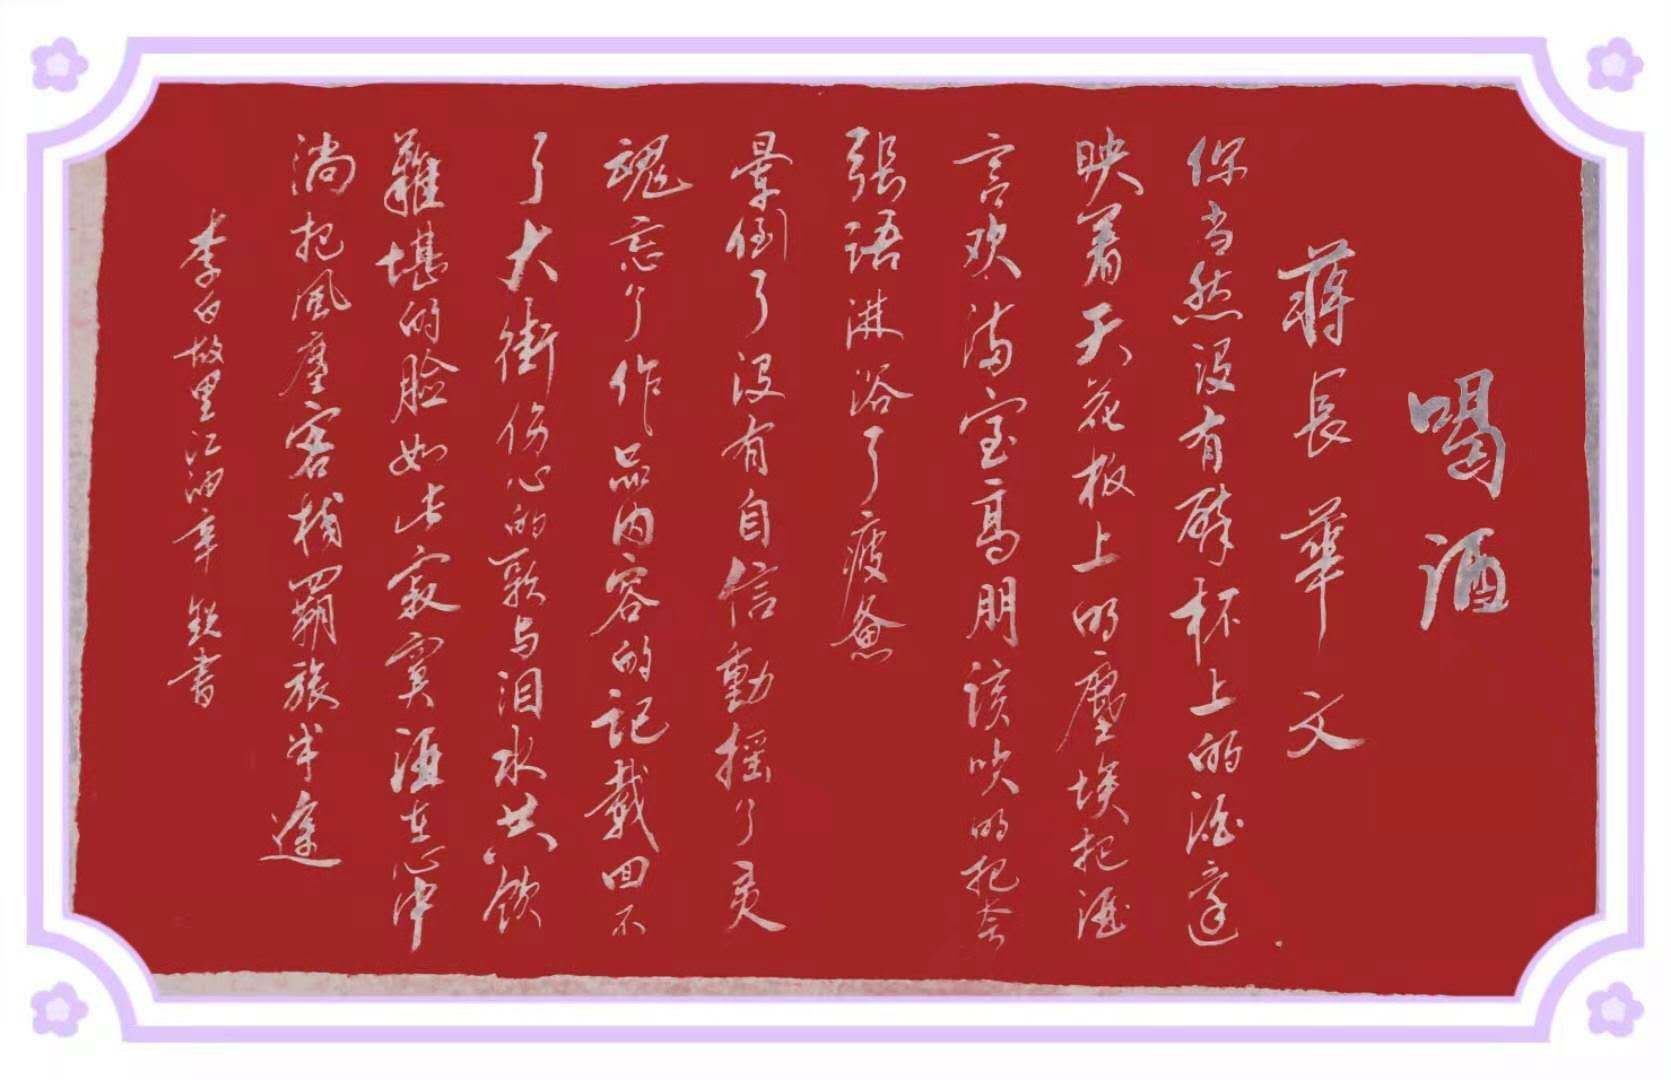 喝酒
蒋長華 文
你当然没有醉杯上的酒意
映着天花板上的塵埃把酒
言欢满室高朋谈吹的把夸
張語淋浴了疲惫
晕倒了没有自信動摇了灵
魂忘了作品内容的记载回不
了大街伤心的歌与泪水共飲
難堪的脸如此寂寞酒在心中
淌把风塵客栈羁旅半途
李白故里江油章 書